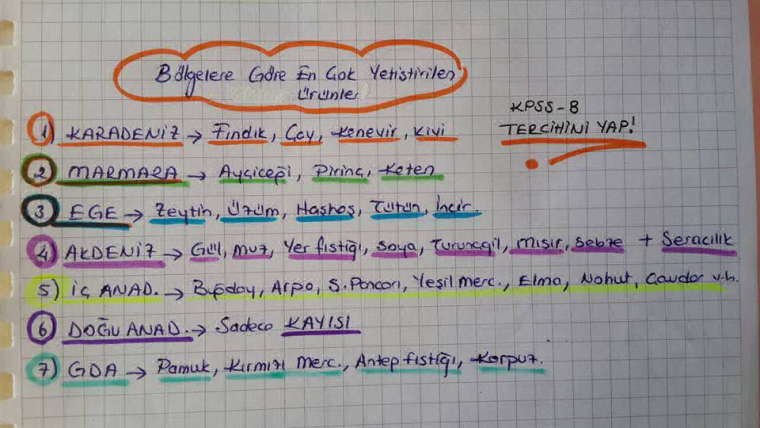 Bölgelere Göre En Çok Yetiştirilen
Ürünler
KPSS-B
TERCİHİNİ YAP!
1) KARADENİZ → Fındık, Çay, Kenevir, Kivi
2) MARMARA → Ayçiçeği, Pirinç, Keten
3) EGE → Zeytin, Üzüm, Haşhaş, Tütün, İncir.
4) AKDENİZ → Gül, muz, Yer fıstığı, soya, Turunçgil, mısır, sebze + Seracılık
5) İÇ ANAD. → Buğday, Arpa, Ş. Pancarı, Yeşil Merc., Elma, Nohut, Çavdar v.b.
6) DOĞU ANAD. → Sadece KAYISI
7) GDA → Pamuk, Kırmızı Merc., Antep fıstığı, Karpuz.